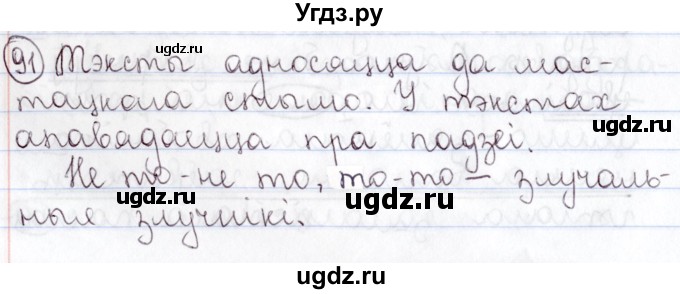 Угдз.ру
91 Тэксты адносяцца да мас-
тацкага стылю. У тэкстах
апавядаецца пра падзеі.
Не то-не то, то-то – злучаль-
ныя злучнікі.
ugdz.ru
ugdz.ru
ugdz.ru
ugdz.ru
ugdz.ru
ugdz.ru